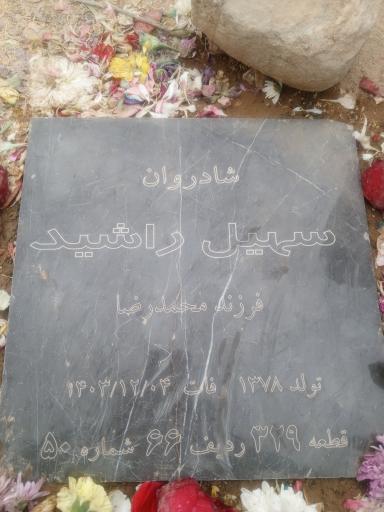 شادروان
سهیل راشید
فرزند محمدرضا
تولد ۱۳۷۸ فات ۱۴۰۳/۱۲/۰۴
قطعه ۳۲۹ ردیف ۶۶ شماره ۵۰